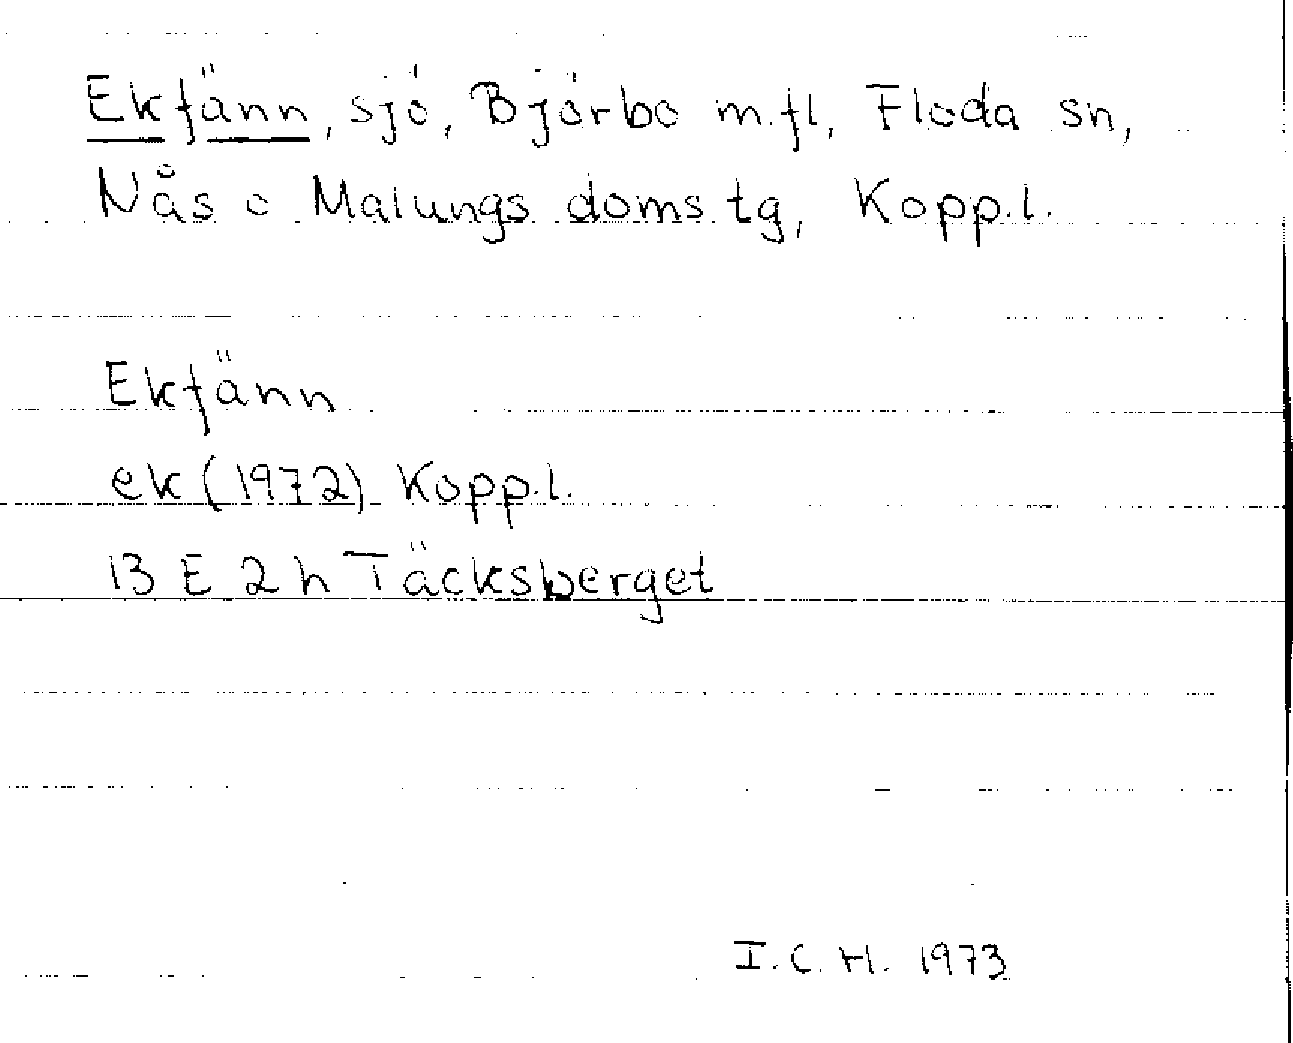 Ekfänn, sjö, Björbo m.fl, Floda sn,
Nås o Malungs doms.tg, Kopp.l.
Ekfänn
ek (1972) Kopp.l.
13 E 2 h Täcksberget
I.C.H. 1973